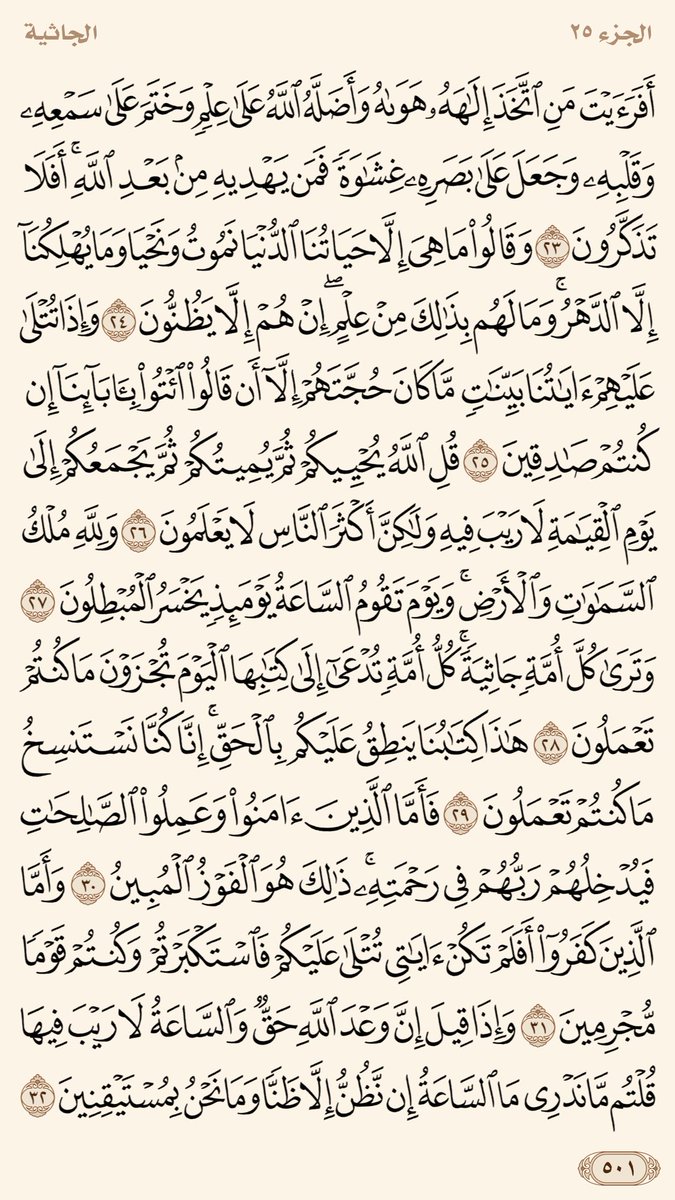 الجزء ٢٥
الجاثية
أَفَرَءَيْتَ مَنِ ٱتَّخَذَ إِلَٰهَهُۥ هَوَىٰهُ وَأَضَلَّهُ ٱللَّهُ عَلَىٰ عِلْمٍ وَخَتَمَ عَلَىٰ سَمْعِهِۦ
وَقَلْبِهِۦ وَجَعَلَ عَلَىٰ بَصَرِهِۦ غِشَٰوَةً فَمَن يَهْدِيهِ مِنۢ بَعْدِ ٱللَّهِ ۚ أَفَلَا
تَذَكَّرُونَ ٢٣ وَقَالُوا۟ مَا هِىَ إِلَّا حَيَاتُنَا ٱلدُّنْيَا نَمُوتُ وَنَحْيَا وَمَا يُهْلِكُنَآ
إِلَّا ٱلدَّهْرُ ۚ وَمَا لَهُم بِذَٰلِكَ مِنْ عِلْمٍ ۖ إِنْ هُمْ إِلَّا يَظُنُّونَ ٢٤ وَإِذَا تُتْلَىٰ
عَلَيْهِمْ ءَايَٰتُنَا بَيِّنَٰتٍ مَّا كَانَ حُجَّتَهُمْ إِلَّآ أَن قَالُوا۟ ٱئْتُوا۟ بِـَٔابَآئِنَآ إِن
كُنتُمْ صَٰدِقِينَ ٢٥ قُلِ ٱللَّهُ يُحْيِيكُمْ ثُمَّ يُمِيتُكُمْ ثُمَّ يَجْمَعُكُمْ إِلَىٰ
يَوْمِ ٱلْقِيَٰمَةِ لَا رَيْبَ فِيهِ وَلَٰكِنَّ أَكْثَرَ ٱلنَّاسِ لَا يَعْلَمُونَ ٢٦ وَلِلَّهِ مُلْكُ
ٱلسَّمَٰوَٰتِ وَٱلْأَرْضِ ۚ وَيَوْمَ تَقُومُ ٱلسَّاعَةُ يَوْمَئِذٍ يَخْسَرُ ٱلْمُبْطِلُونَ ٢٧
وَتَرَىٰ كُلَّ أُمَّةٍ جَاثِيَةً ۚ كُلُّ أُمَّةٍ تُدْعَىٰٓ إِلَىٰ كِتَٰبِهَا ٱلْيَوْمَ تُجْزَوْنَ مَا كُنتُمْ
تَعْمَلُونَ ٢٨ هَٰذَا كِتَٰبُنَا يَنطِقُ عَلَيْكُم بِٱلْحَقِّ ۚ إِنَّا كُنَّا نَسْتَنسِخُ
مَا كُنتُمْ تَعْمَلُونَ ٢٩ فَأَمَّا ٱلَّذِينَ ءَامَنُوا۟ وَعَمِلُوا۟ ٱلصَّٰلِحَٰتِ
فَيُدْخِلُهُمْ رَبُّهُمْ فِى رَحْمَتِهِۦ ۚ ذَٰلِكَ هُوَ ٱلْفَوْزُ ٱلْمُبِينُ ٣٠ وَأَمَّا
ٱلَّذِينَ كَفَرُوٓا۟ أَفَلَمْ تَكُنْ ءَايَٰتِى تُتْلَىٰ عَلَيْكُمْ فَٱسْتَكْبَرْتُمْ وَكُنتُمْ قَوْمًا
مُّجْرِمِينَ ٣١ وَإِذَا قِيلَ إِنَّ وَعْدَ ٱللَّهِ حَقٌّ وَٱلسَّاعَةُ لَا رَيْبَ فِيهَا
قُلْتُم مَّا نَدْرِى مَا ٱلسَّاعَةُ إِن نَّظُنُّ إِلَّا ظَنًّا وَمَا نَحْنُ بِمُسْتَيْقِنِينَ ٣٢
٥٠١